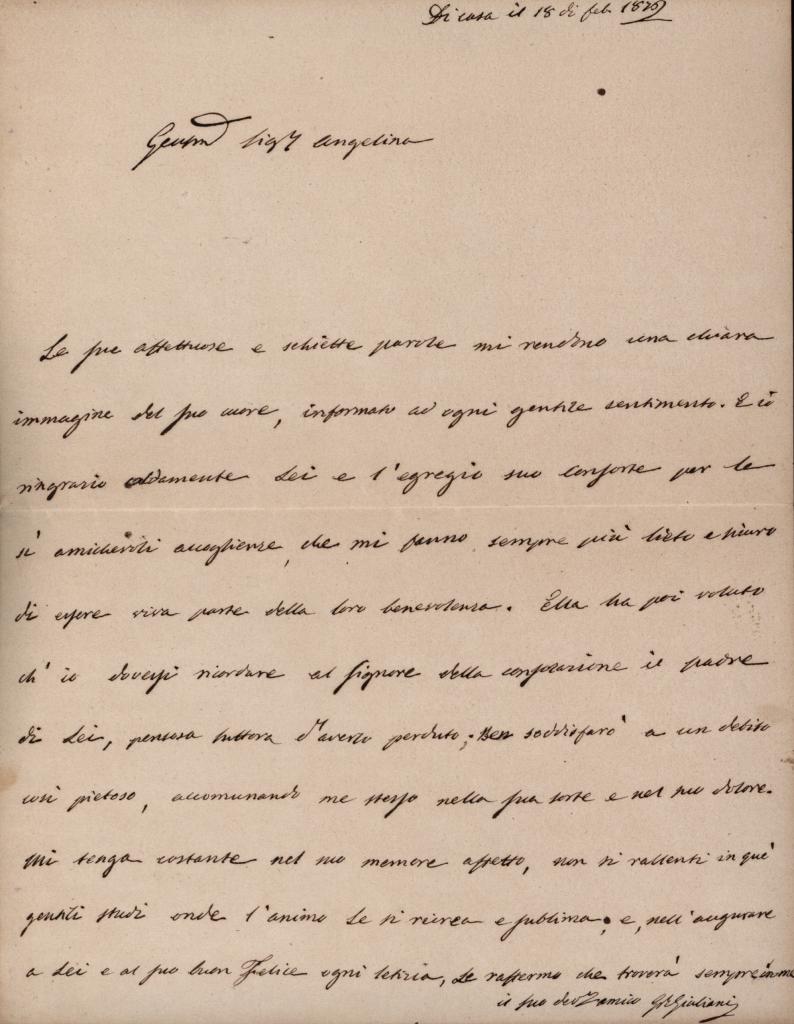 Di casa il 18 di feb 1876
Gentma Sigra Angelina
Le sue affettuose e schiette parole mi rendono una chiara
immagine del suo cuore, informato ad ogni gentile sentimento. E io
ringrazio caldamente Lei e l'egregio suo Consorte per le
sì amichevoli accoglienze, che mi fanno sempre più lieto e sicuro
di essere viva parte della loro benevolenza. Ella ha poi voluto
ch'io dovessi ricordare al Signore della consolazione il padre
di Lei, pensosa tuttora d'averlo perduto; Ben soddisfarò a un debito
così pietoso, accomunando me stesso nella sua sorte e nel suo dolore.
Mi tenga costante nel suo memore affetto, non si rallenti in que'
gentili studi onde l'animo Le si ricrea e sublima; e, nell'augurare
a Lei e al suo buon Felice ogni letizia, Le raffermo che troverà sempre in me
il suo devmo amico GBGiuliani